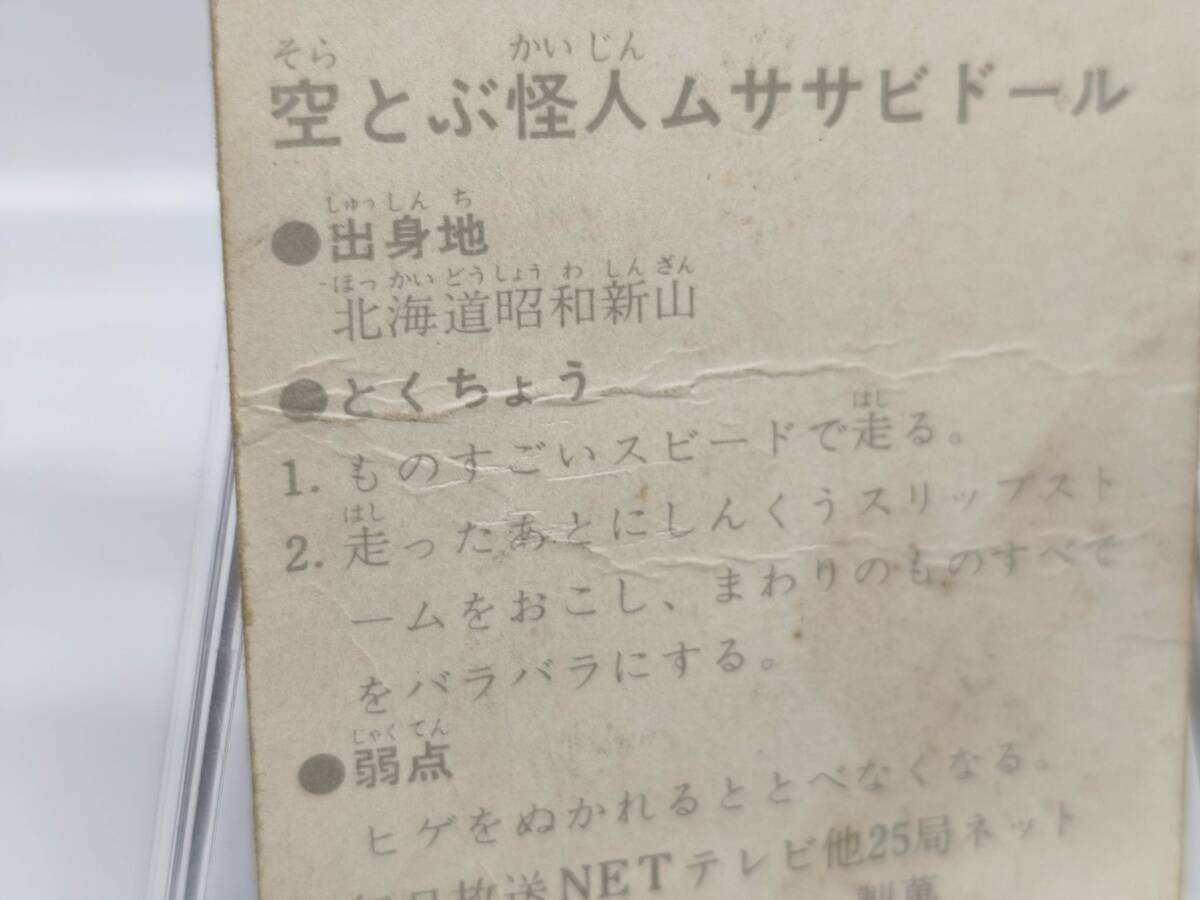 そら かいじん
空とぶ怪人ムササビドール
しゅっしん ち
●出身地
ほっかいどうしょうわ しんざん
北海道昭和新山
●とくちょう
はし
1. ものすごいスピードで走る。
はし
2. 走ったあとにしんくうスリップスト
ームをおこし、まわりのものすべて
をバラバラにする。
じゃくてん
●弱点
ヒゲをぬかれるととべなくなる。
毎日放送NETテレビ他25局ネット
製菓